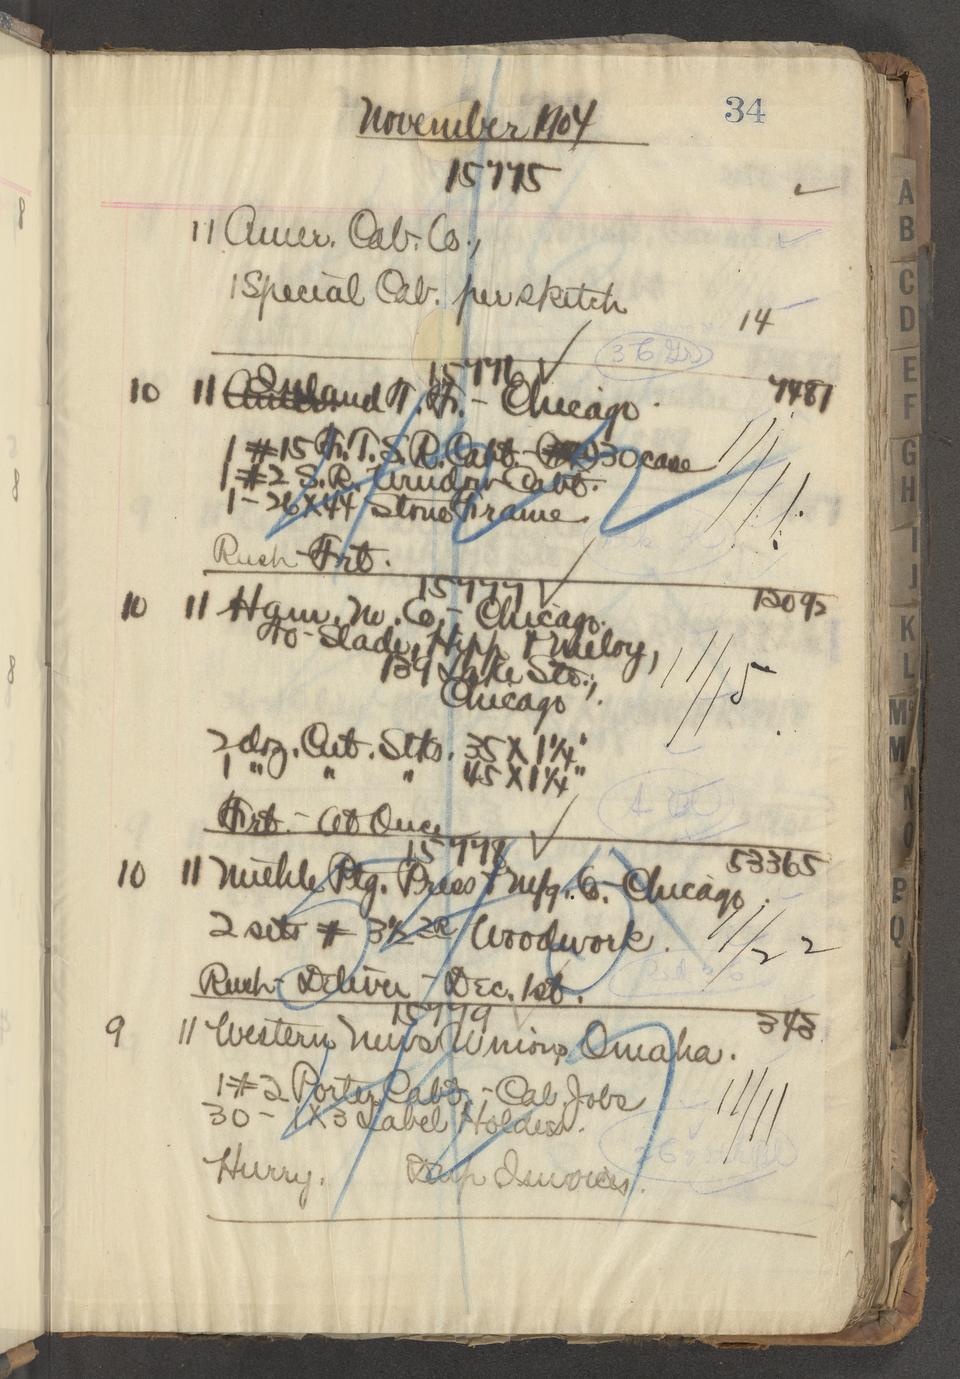 34
November 1904
15775
11 Amer. Cab. Co.,
1 Special Cab. per sketch
14
15776
10 11 and T. F. - Chicago. 7481
1 #15 R. T. S. R. Cabt. 30 case
1 #2 S. R. Cabt.
1 - 26 X 44 Stone Frame
Rush - Frt.
15777 12092
10 11 Ham. M. Co. - Chicago.
To - Slade, Hipp & Meloy,
139 Lake St.,
Chicago.
11/15
2 doz. Cut. Stks. 35 X 1 1/4"
1 " " " 45 X 1 1/4"
Frt. - At Once
15778 53365
10 11 Miehle Ptg. Press & Mfg. Co. Chicago.
2 sets # 3 1/2 2R Woodwork. 11/22
Rush - Deliver - Dec. 1st.
15779 343
9 11 Western News Union, Omaha.
1 #2 Porter Cabt. - Cal Jobs 11/11
30 - 1 X 3 Label Holders.
Hurry. Dup Invoices.
A
B
C
D
E
F
G
H
I
J
K
L
M
N
O
P
Q